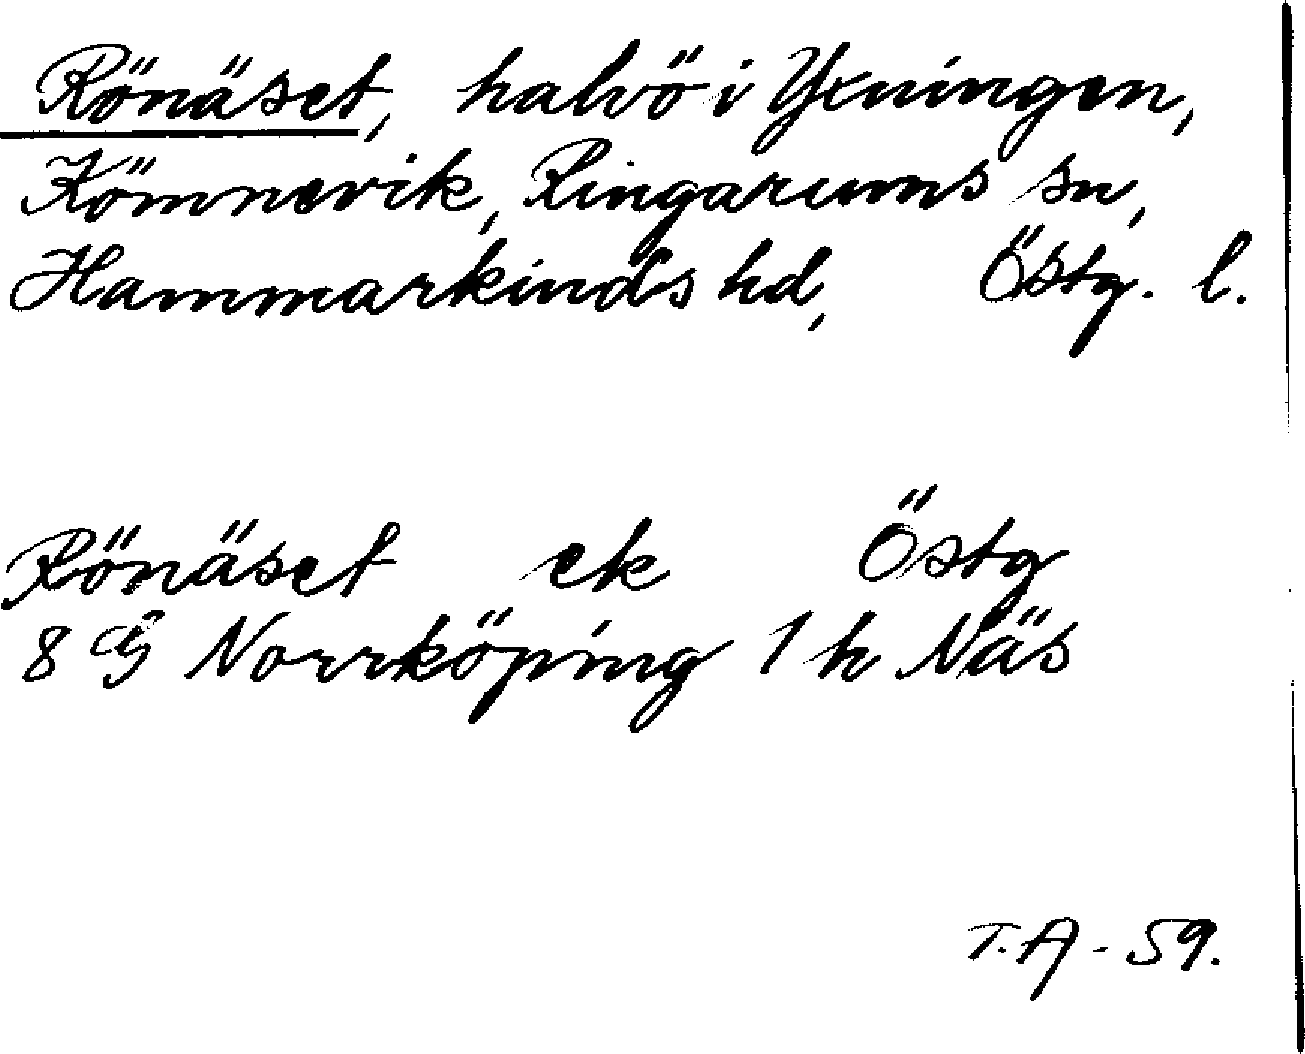 Rönäset, halvö i Yxningen,
Kömnevik, Ringarums sn,
Hammarkinds hd, Östg. l.
Rönäset ek Östg
8 G Norrköping 1 h Näs
T.A - 59.